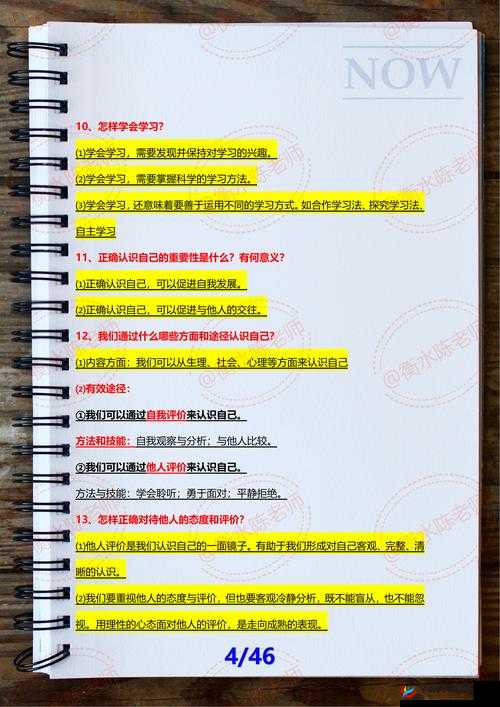 NOW
10、怎样学会学习?
⑴学会学习，需要发现并保持对学习的兴趣。
⑵学会学习，需要掌握科学的学习方法。
⑶学会学习，还意味着要善于运用不同的学习方式。如合作学习法、探究学习法、
自主学习
11、正确认识自己的重要性是什么? 有何意义?
⑴正确认识自己，可以促进自我发展。
⑵正确认识自己，可以促进与他人的交往。
12、我们通过什么哪些方面和途径认识自己?
⑴内容方面：我们可以从生理、社会、心理等方面来认识自己
⑵有效途径：
①我们可以通过自我评价来认识自己。
方法和技能：自我观察与分析；与他人比较。
②我们可以通过他人评价来认识自己。
方法与技能：学会聆听；勇于面对；平静拒绝。
13、怎样正确对待他人的态度和评价?
⑴他人评价是我们认识自己的一面镜子。有助于我们形成对自己客观、完整、清
晰的认识。
⑵我们要重视他人的态度与评价，但也要客观冷静分析，既不能盲从，也不能忽
视。用理性的心态面对他人的评价，是走向成熟的表现。
4/46
@衡水陈老师
@衡水陈老师
@衡水陈老师
@衡水陈老师
@衡水陈老师
@衡水陈老师